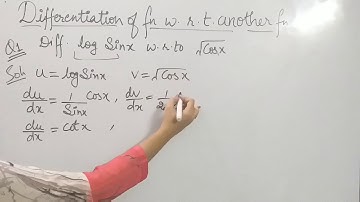 Differentiation of fn w.r.t. another fn
Q1 Diff. log Sinx w.r.to √Cosx
Soln u = logSinx v = √Cosx
du/dx = 1/Sinx Cosx, dv/dx = 1/2
du/dx = cotx ,